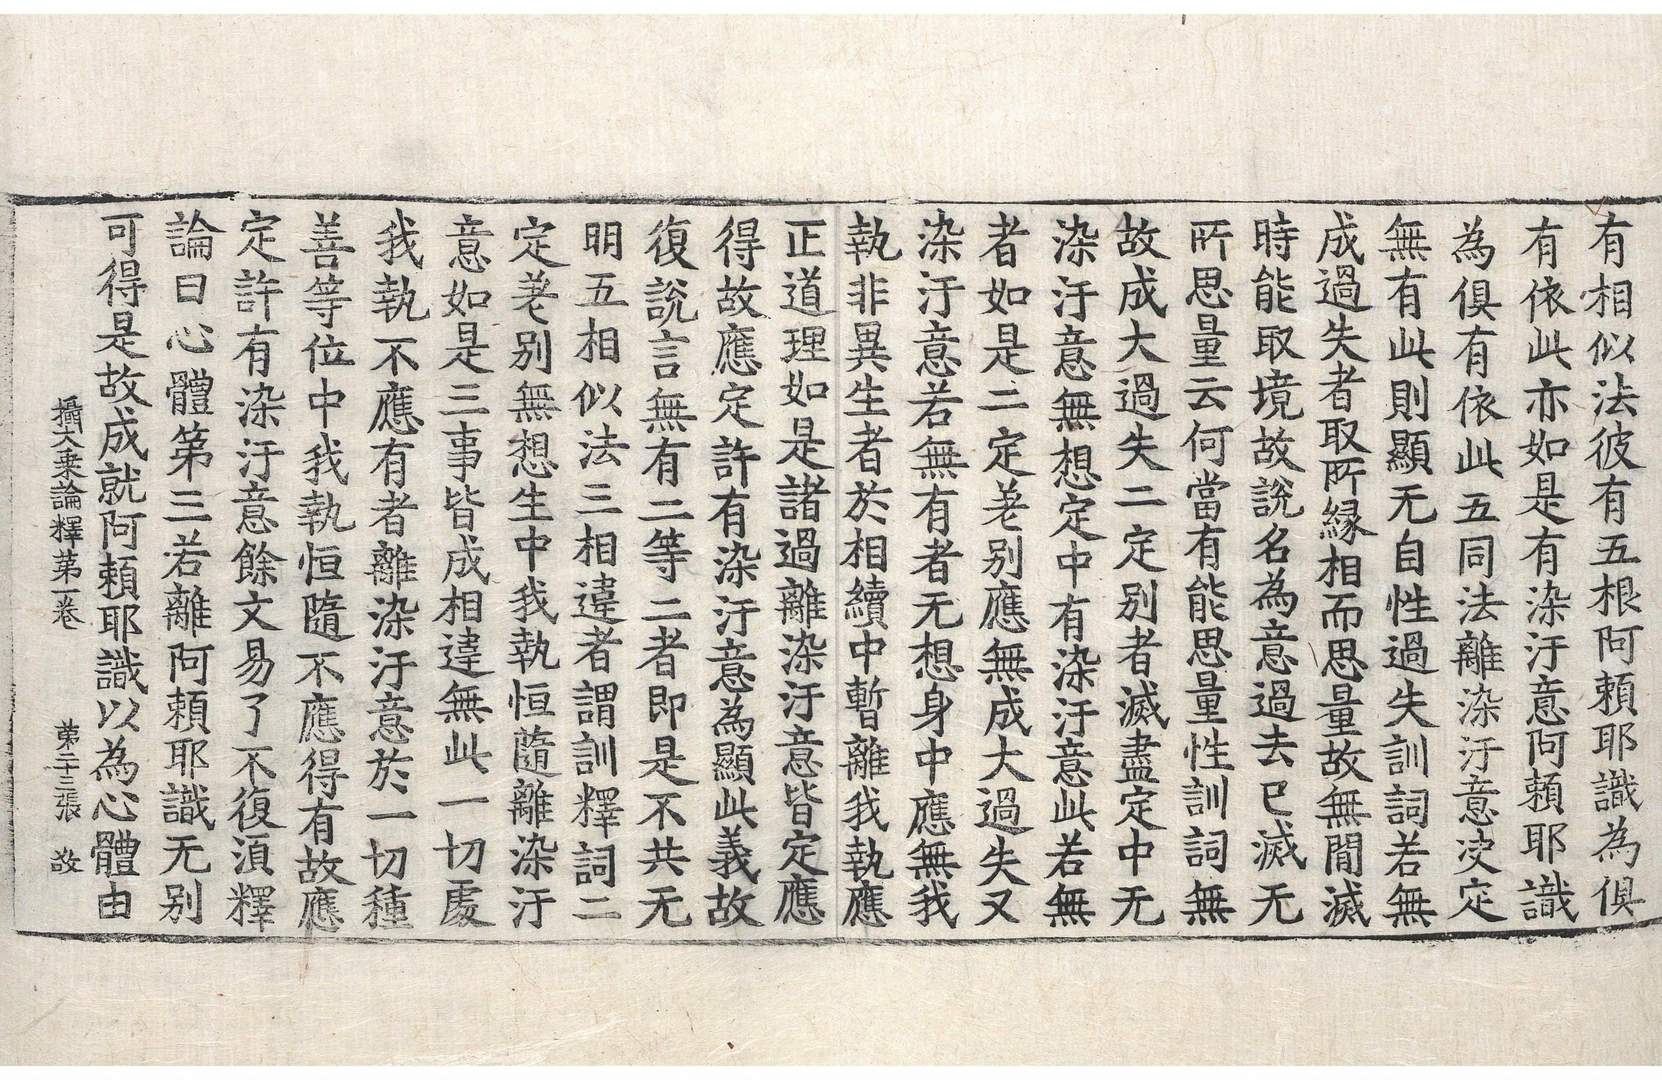 有相似法彼有五根阿頼耶識為俱
有依此亦如是有染汙意阿頼耶識
為俱有依此五同法離染汙意决定
無有此則顯无自性過失訓詞若無
成過失者取所縁相而思量故無間滅
時能取境故說名為意過去已滅无
所思量云何當有能思量性訓詞無
故成大過失二定別者滅盡定中无
染汙意無想定中有染汙意此若無
者如是二定差别應無成大過失又
染汙意若無有者无想身中應無我
執非異生者於相續中暫離我執應
正道理如是諸過離染汙意皆定應
得故應定許有染汙意為顯此義故
復說言無有二等二者即是不共无
明五相似法三相違者謂訓釋詞二
定差别無想生中我執恒隨離染汙
意如是三事皆成相違無此一切處
我執不應有者離染汙意於一切種
善等位中我執恒隨不應得有故應
定許有染汙意餘文易了不復湏釋
論曰心體第三若離阿頼耶識无别
可得是故成就阿頼耶識以為心體由
攝大乗論釋第一卷 第二十三張